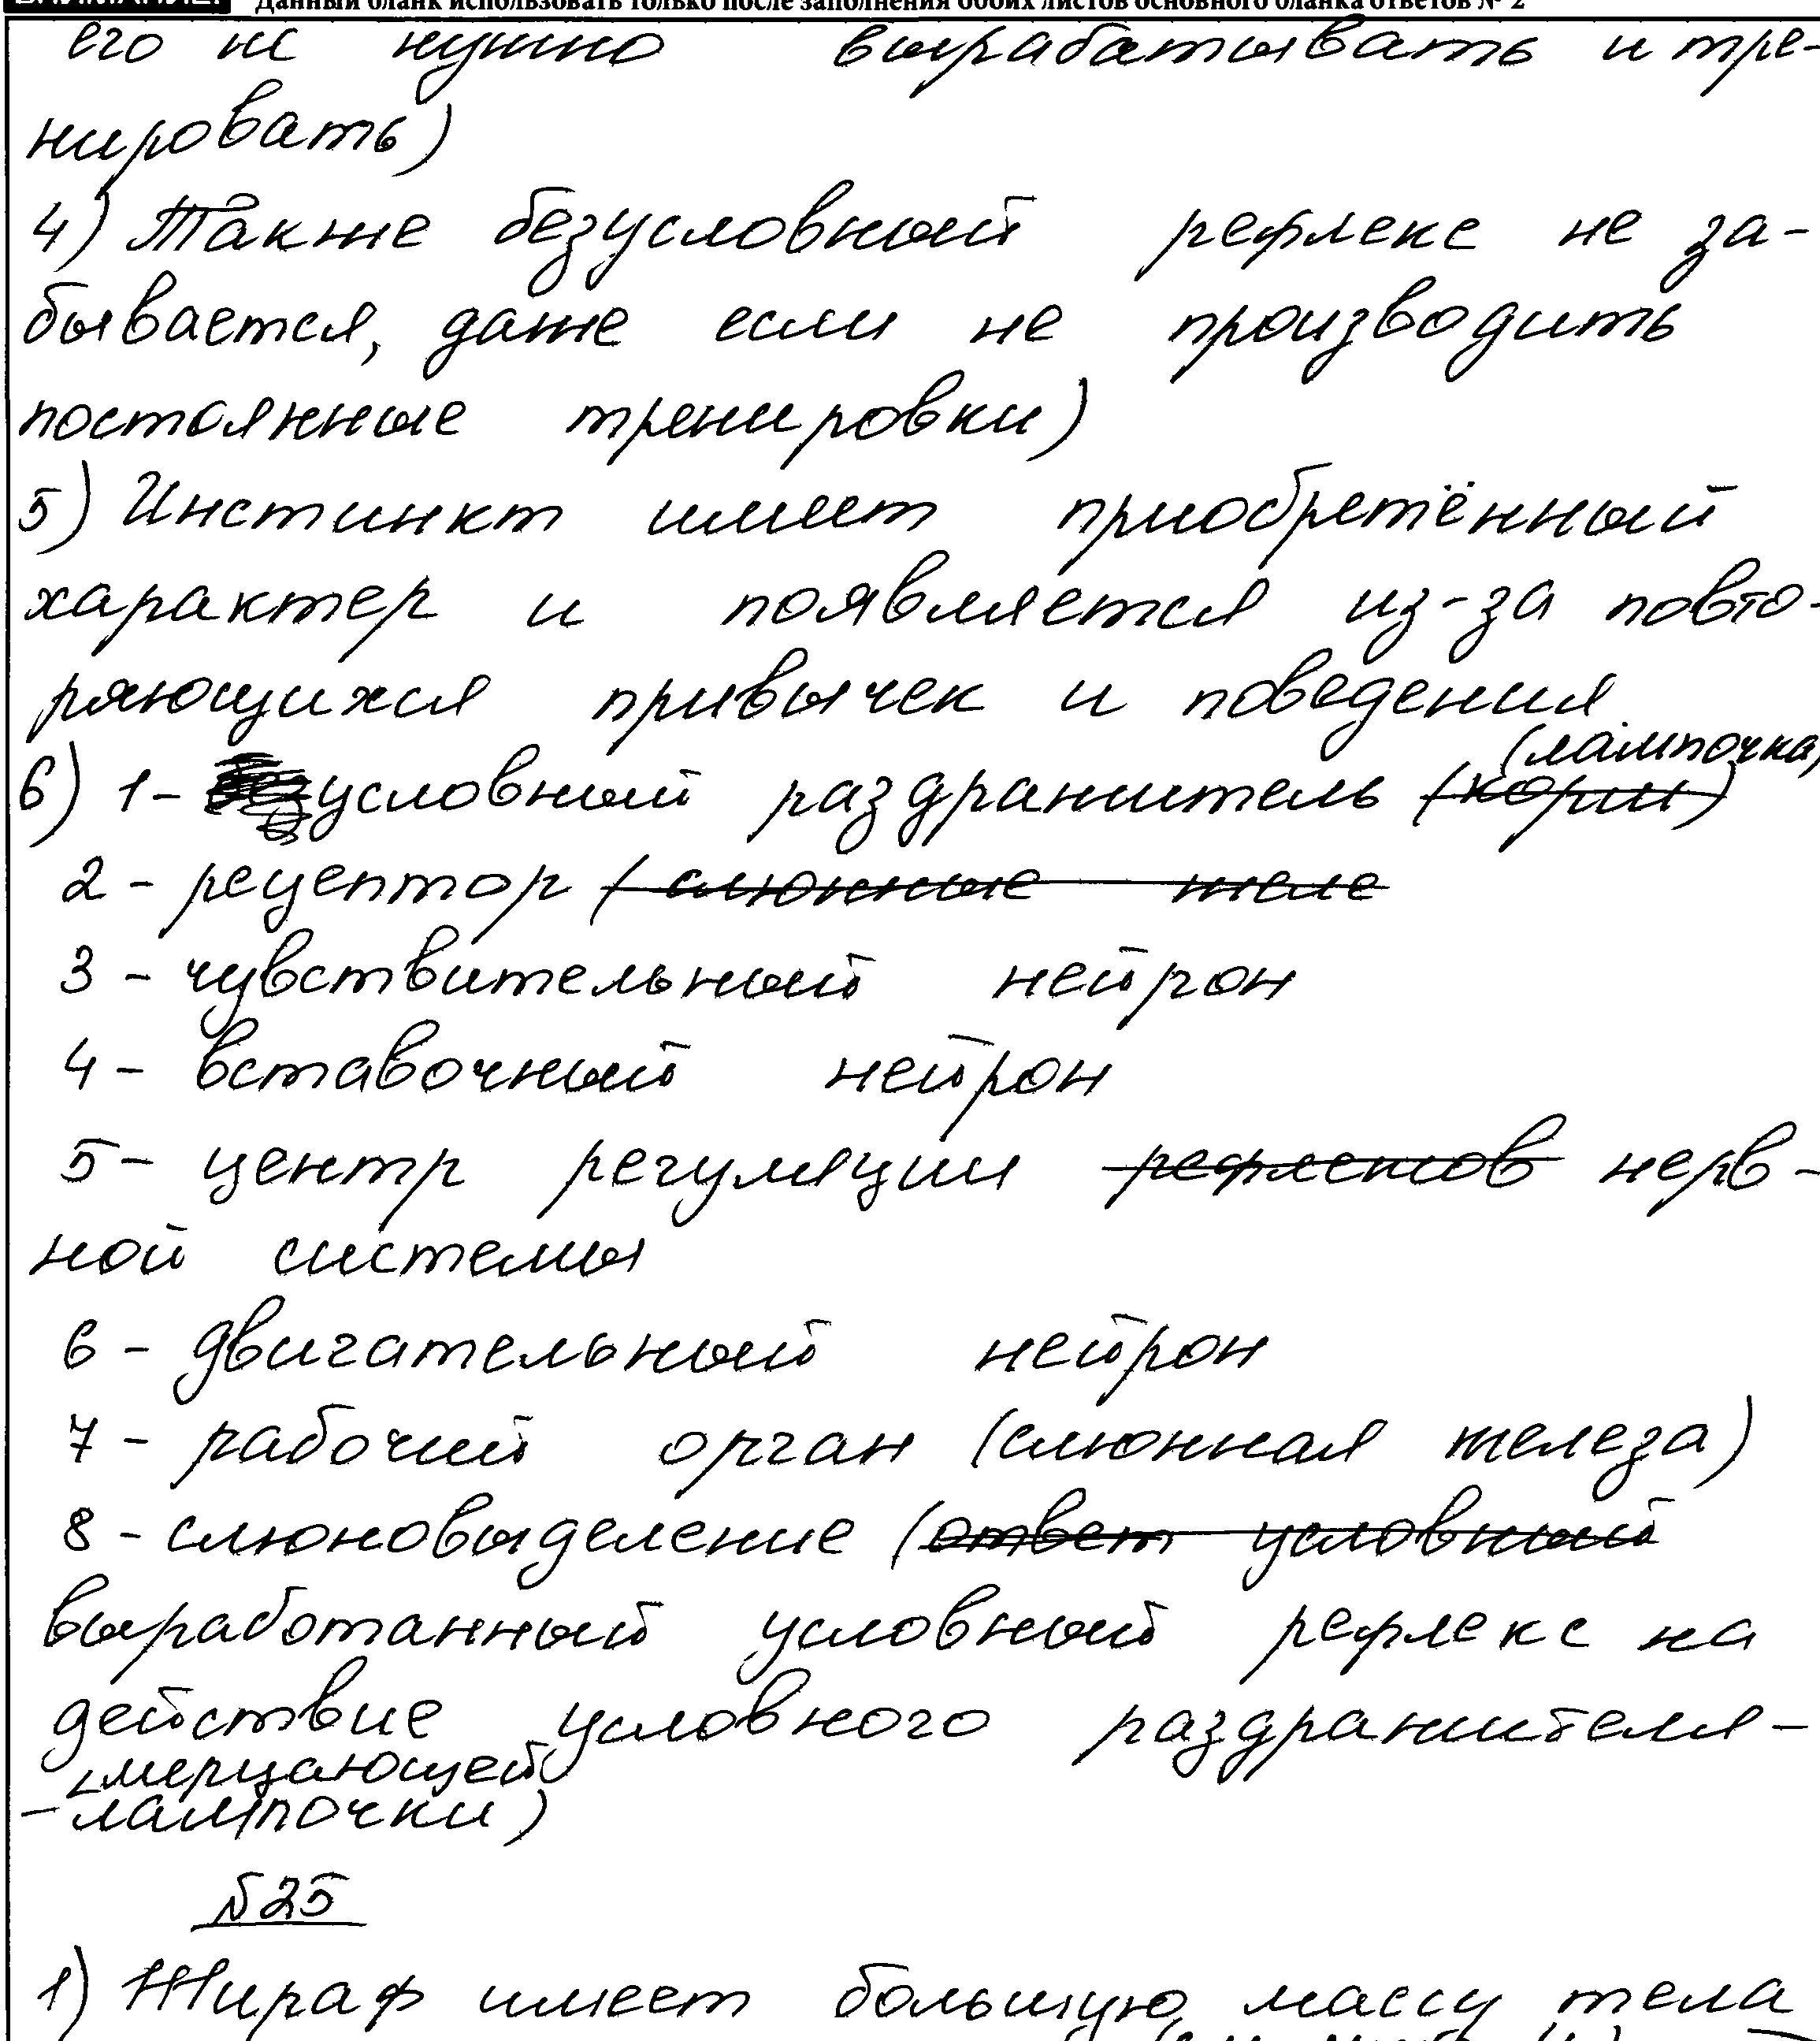 Данный бланк использовать только после заполнения обоих листов основного бланка ответов № 2
его не нужно вырабатывать и тре-
нировать)
4) Также безусловный рефлекс не за-
бывается, даже если не производить
постоянные тренировки)
5) Инстинкт имеет приобретённый
характер и появляется из-за повто-
ряющихся привычек и поведения
6) 1- условный раздражитель (корм) (лампочка)
2 - рецептор (слюнные желе
3 - чувствительный нейрон
4 - вставочный нейрон
5 - центр регуляции рефлексов нерв-
ной системы
6 - двигательный нейрон
7 - рабочий орган (слюнная железа)
8 - слюновыделение (ответ условный
выработанный условный рефлекс на
действие условного раздражителя -
мерцающей
- лампочки)
№25
1) Жираф имеет большую массу тела